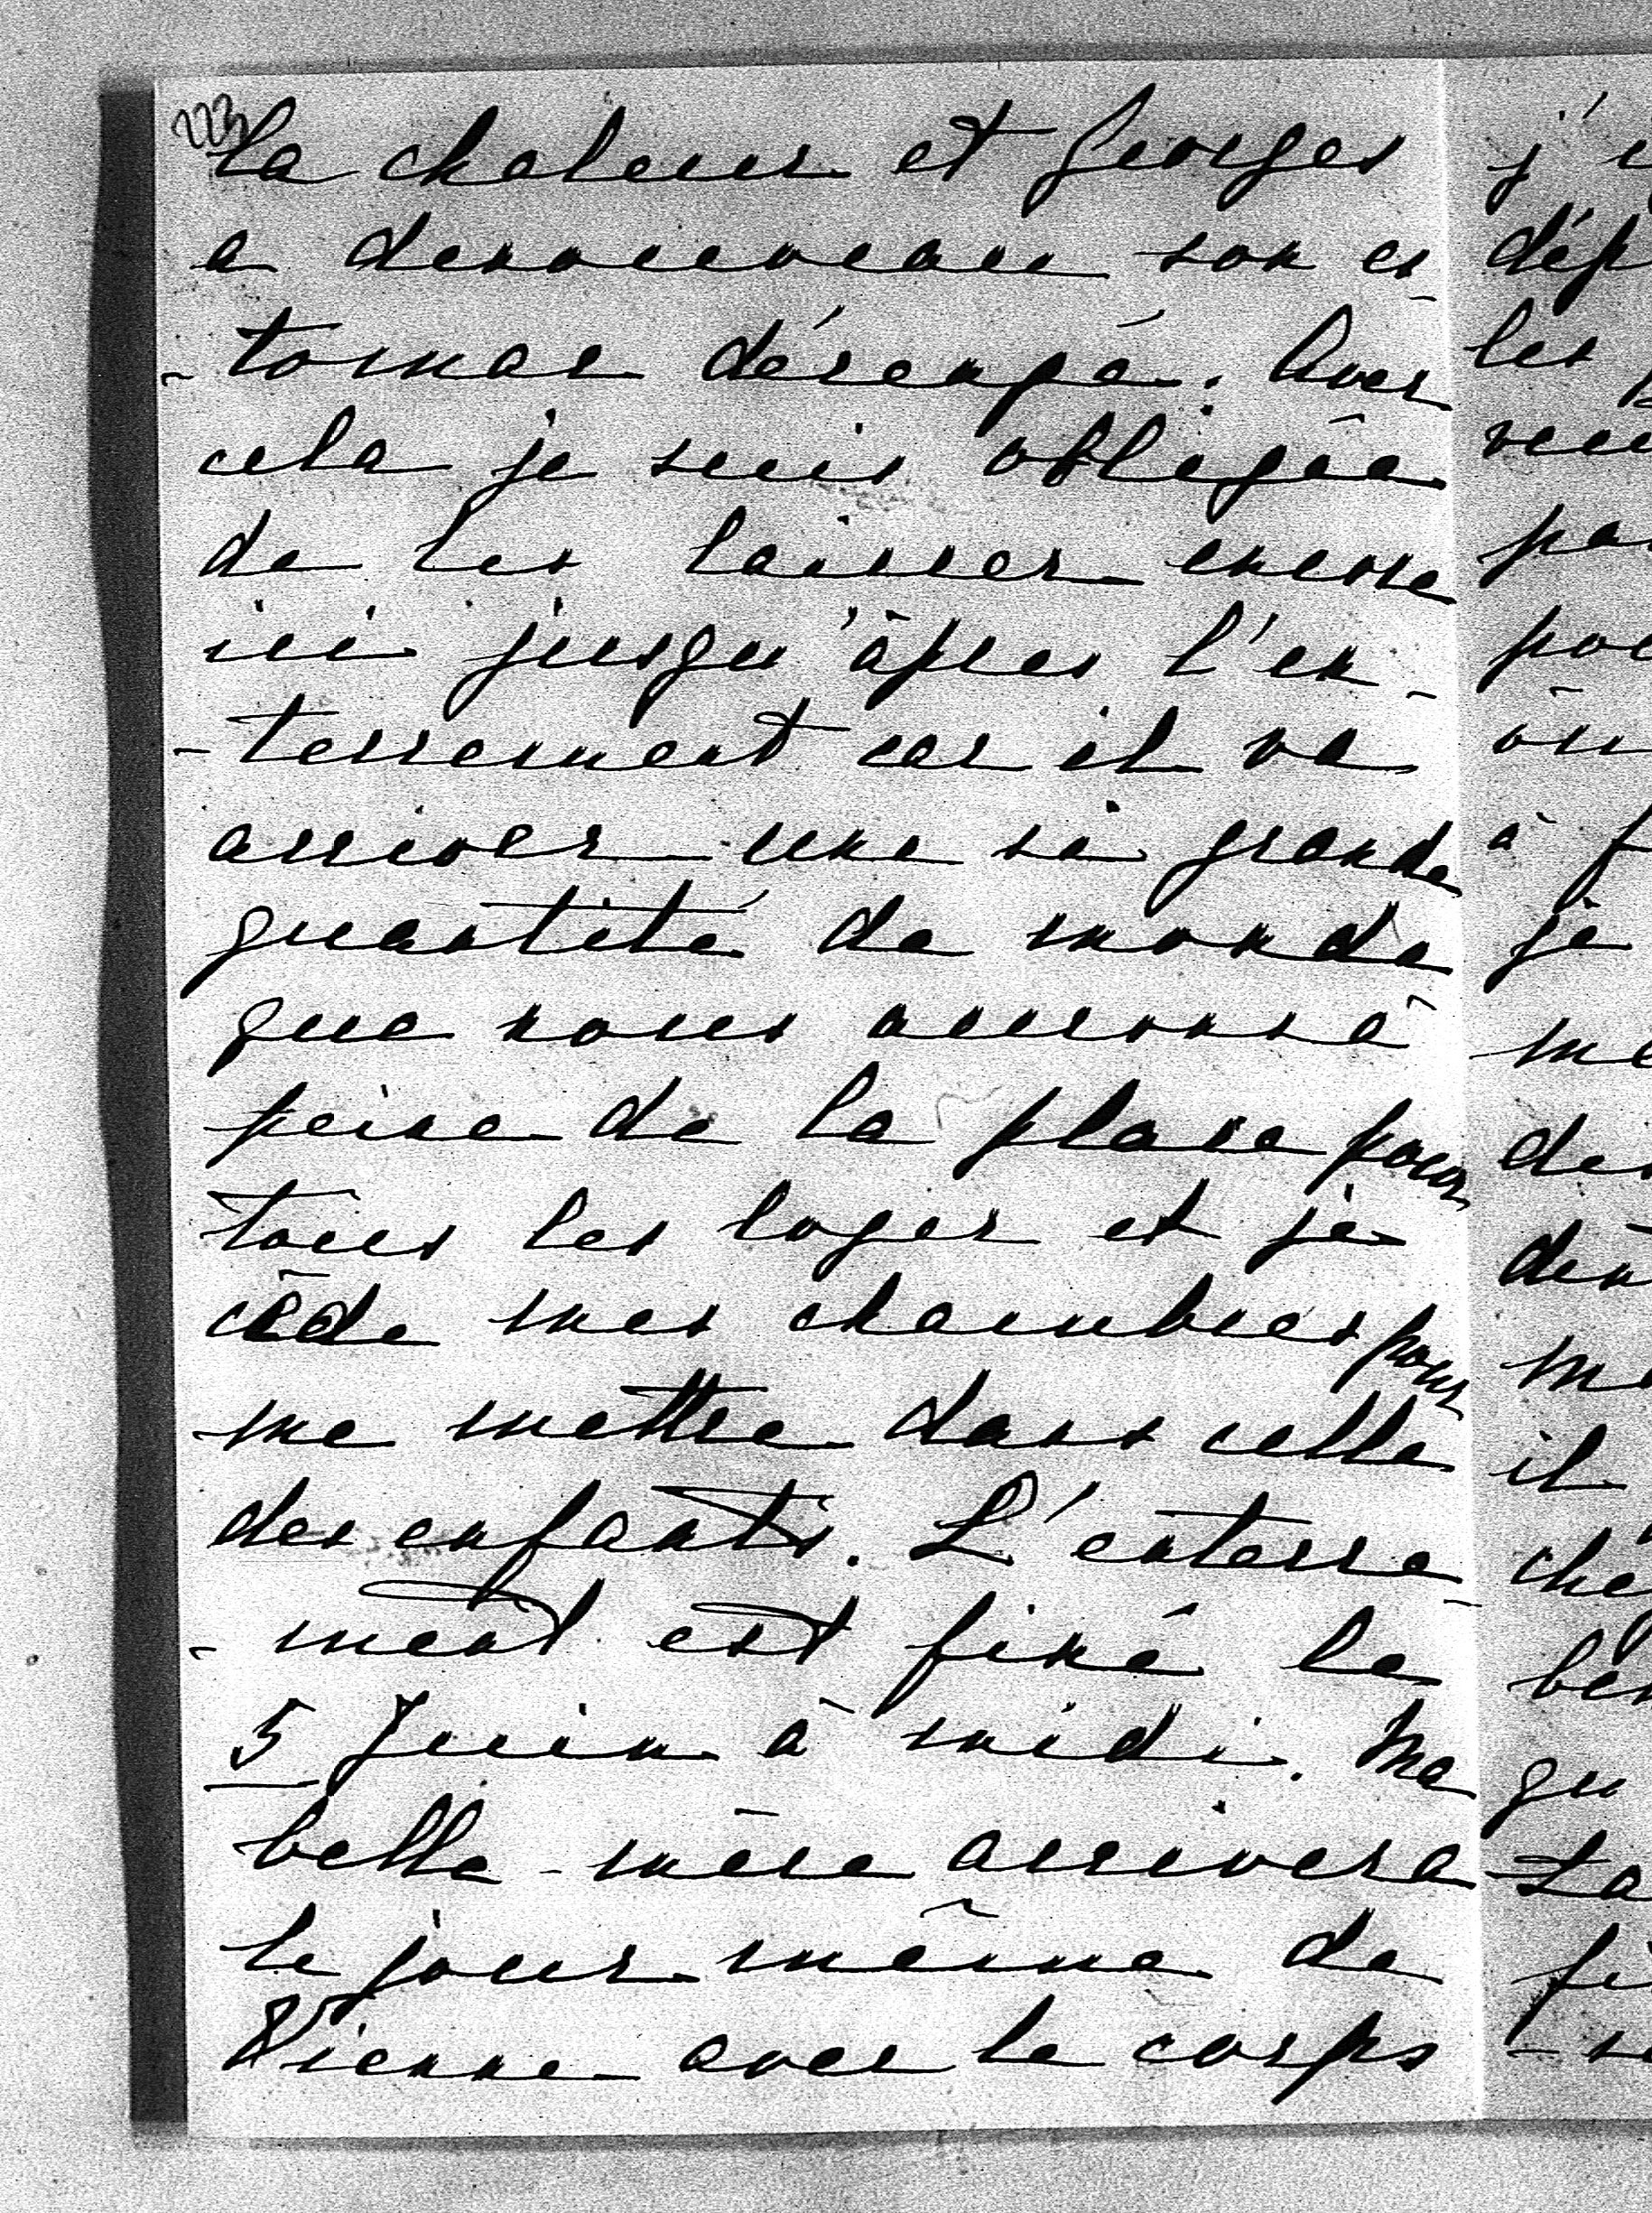 la chaleur et Georges
a denouveau son es
-tomac dérengé. Avec
cela je suis obligée
de les laisser encore
ici jusqu'âpres l'en-
-terrement car il va
arriver une si grande
quantité de monde
que nous aurons à
peine de la place pour
tous les loger et je
cède mes chambres pour
me mettre dans celle
des enfants. L'enterre-
-ment est fixé le
5 Juin à midi. Ma
belle-mère arrivera
le jour même de
Vienne avec le corps